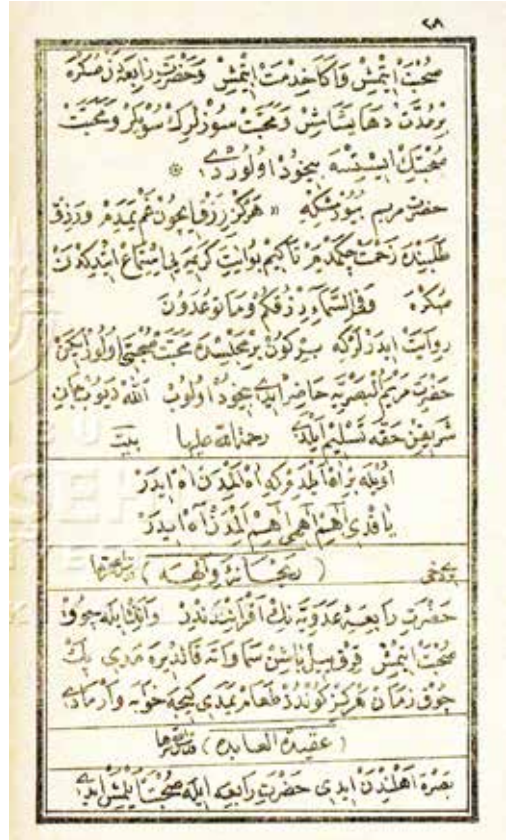 ٢٨
صحبت ایتمش واكا خدمت ایتمش وحضرت رابعه دن صكره
بر مدت دها یشامش ومحبت سوزلركه سویلر ومحبت
صحبتك ایشتسه بیخود اولوردی *
حضرت مریم بیورمشكه « هركز رزق ایچون غم یمدم ورزق
طلبنده زحمت چكمدم تاكیم بو آیت كریمه یی استماع ایتدكدن
صكره وفی السماء رزقكم وما توعدون
روایت ایدرلركه بركون بر مجلسده محبت صحبتی اولور ایكن
حضرت مریم البصریه حاضر ایدی بیخود اولوب الله دیوب جان
شریفن حقه تسلیم ایلدی رحمة الله علیها بیت
اویله بر آه ایلدم كه آه المدن آه ایدر
یاقدی آهم آهمی آهم المدن آه ایدر
بری دخی ( ریحانهٔ والهه )
حضرت رابعهٔ عدویه نك اقراننددر وآنك ایله چوق
صحبت ایتمش قرق ییل باشن سماواته قالدیره مدی پك
چوق زمان هركز كوندز طعام یمدی كیجه خوابه وارمادی
( عقیدة العابده )
بصره اهلندن ایدی حضرت رابعه ایله صحبت ایلمش ایدی